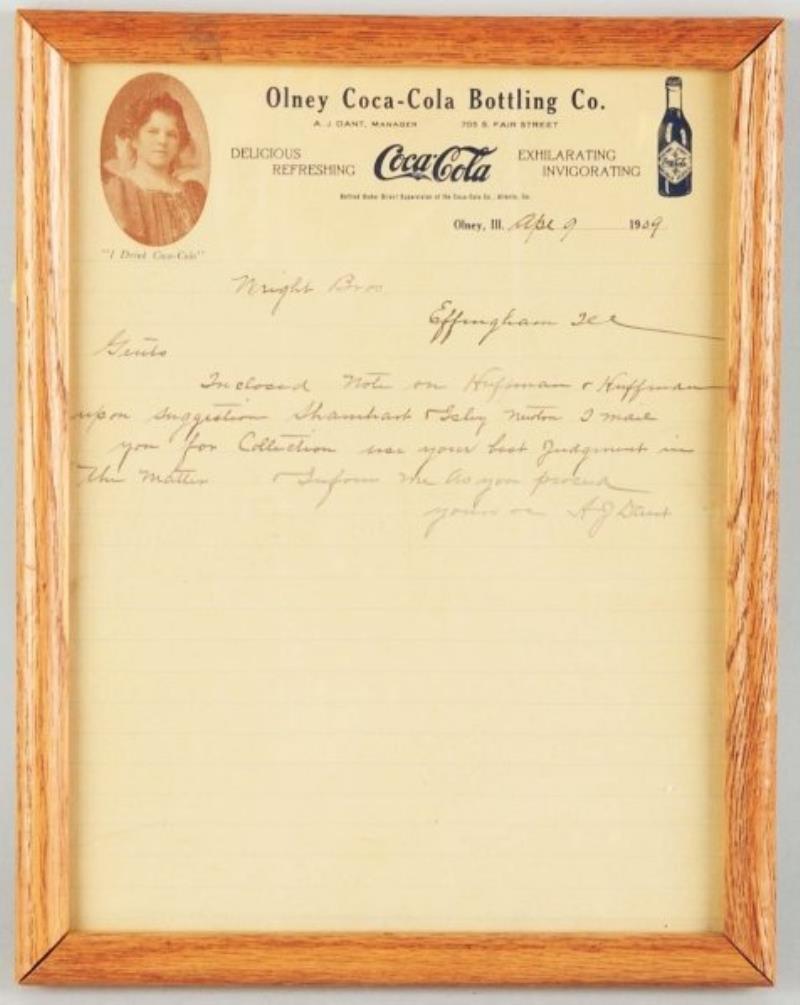 Olney Coca-Cola Bottling Co.
A. J. DANT, MANAGER 705 S. FAIR STREET
DELICIOUS REFRESHING
Coca-Cola
EXHILARATING INVIGORATING
Coca-Cola
Bottled Under Direct Supervision of the Coca-Cola Co., Atlanta, Ga.
Olney, Ill. Apl 9 1909
"I Drink Coca-Cola"
Wright Bros
Effingham Ill
Gents
Inclosed Note on & Huffman
upon suggestion Shamhart & Newton I mail
you for Collection use your best Judgment in
the matter & Inform me as you proceed
yours A J Dant